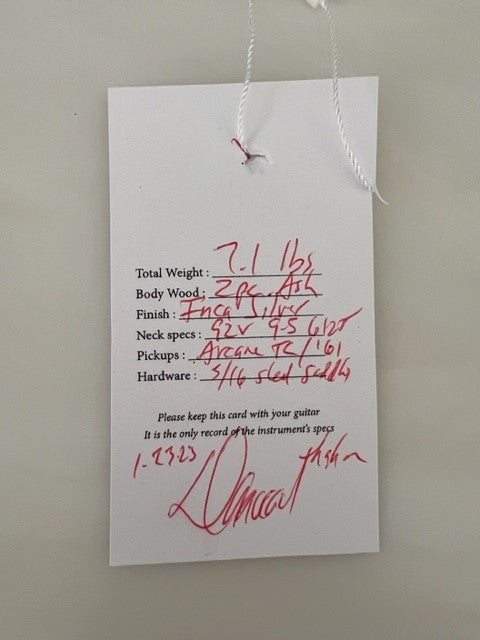 Total Weight : 7.1 lbs
Body Wood : 2pc. Ash
Finish : Inca Silver
Neck specs : 92V 9.5 6125
Pickups : Arcane TC/'61
Hardware : 5/16 sled saddles
Please keep this card with your guitar
It is the only record of the instrument's specs
1.2323